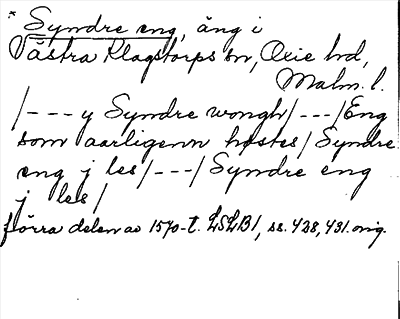 * Syndre eng, äng i
Västra Klagstorps sn, Oxie hd,
Malm. l.
/--- y Syndre wongh/---/Eng
som aarligenn høstes/Syndre
eng j les/---/Syndre eng
j les/
förra delen av 1570-t. LSLB1, ss. 428, 431. orig.